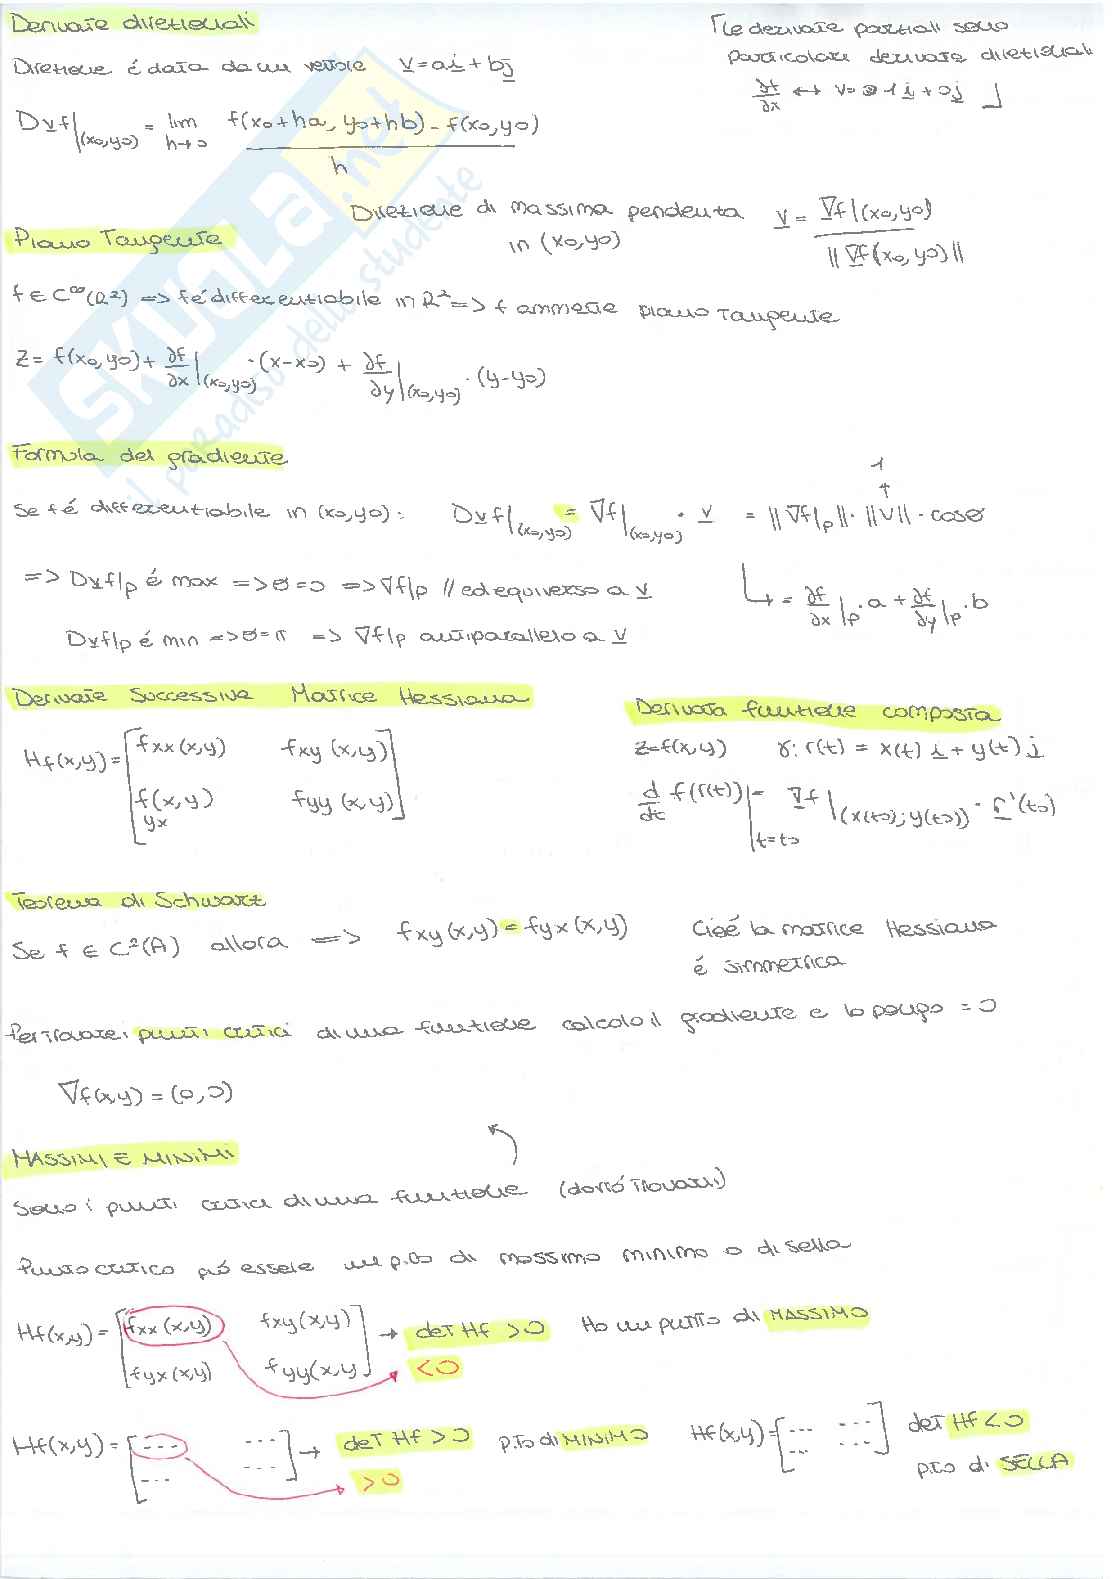 Derivate direzionali
Direzione é data da un versore v=ai+bj
Dvf|(x0,y0) = lim h→0 f(x0+ha, y0+hb) - f(x0,y0) / h
[le derivate parziali sono
particolari derivate direzionali
∂f/∂x ↔ v= 1i+0j ]
Direzione di massima pendenza v = ∇f|(x0,y0) / ||∇f(x0,y0)||
in (x0,y0)
Piano Tangente
f ∈ C∞(R²) => f é differenziabile in R² => f ammette piano Tangente
z = f(x0,y0) + ∂f/∂x|(x0,y0) ·(x-x0) + ∂f/∂y|(x0,y0) ·(y-y0)
Formula del gradiente
1
↑
Se f é differenziabile in (x0,y0): Dvf|(x0,y0) = ∇f|(x0,y0) · v = ||∇f|p||·||v||·cosθ
=> Dvf|p é max => θ=0 => ∇f|p // ed equiverso a v
↳ = ∂f/∂x|p ·a + ∂f/∂y|p ·b
Dvf|p é min => θ=π => ∇f|p antiparallelo a v
Derivate Successive Matrice Hessiana
Hf(x,y) = [fxx(x,y) fxy(x,y)
fyx(x,y) fyy(x,y)]
Derivata funzione composta
z=f(x,y) γ: r(t) = x(t) i + y(t) j
d/dt f(r(t))|t=t0 = ∇f|(x(t0);y(t0)) · r'(t0)
Teorema di Schwarz
Se f ∈ C²(A) allora => fxy(x,y) = fyx(x,y) Cioé la matrice Hessiana
é simmetrica
Per trovare i punti critici di una funzione calcolo il gradiente e lo pongo = 0
∇f(x,y) = (0,0)
MASSIMI E MINIMI
Sono i punti critici di una funzione (dovró trovarli)
Punto critico pó essere un p.to di massimo minimo o di sella
Hf(x,y) = [fxx(x,y) fxy(x,y)
fyx(x,y) fyy(x,y] → det Hf >0 Ho un punto di MASSIMO
<0
Hf(x,y) = [--- ---
--- ---] → det Hf >0 p.to di MINIMO
>0
Hf(x,y)= [--- ---
--- ---] det Hf <0
p.to di SELLA
SKUOLA.net
il paradiso dello studente